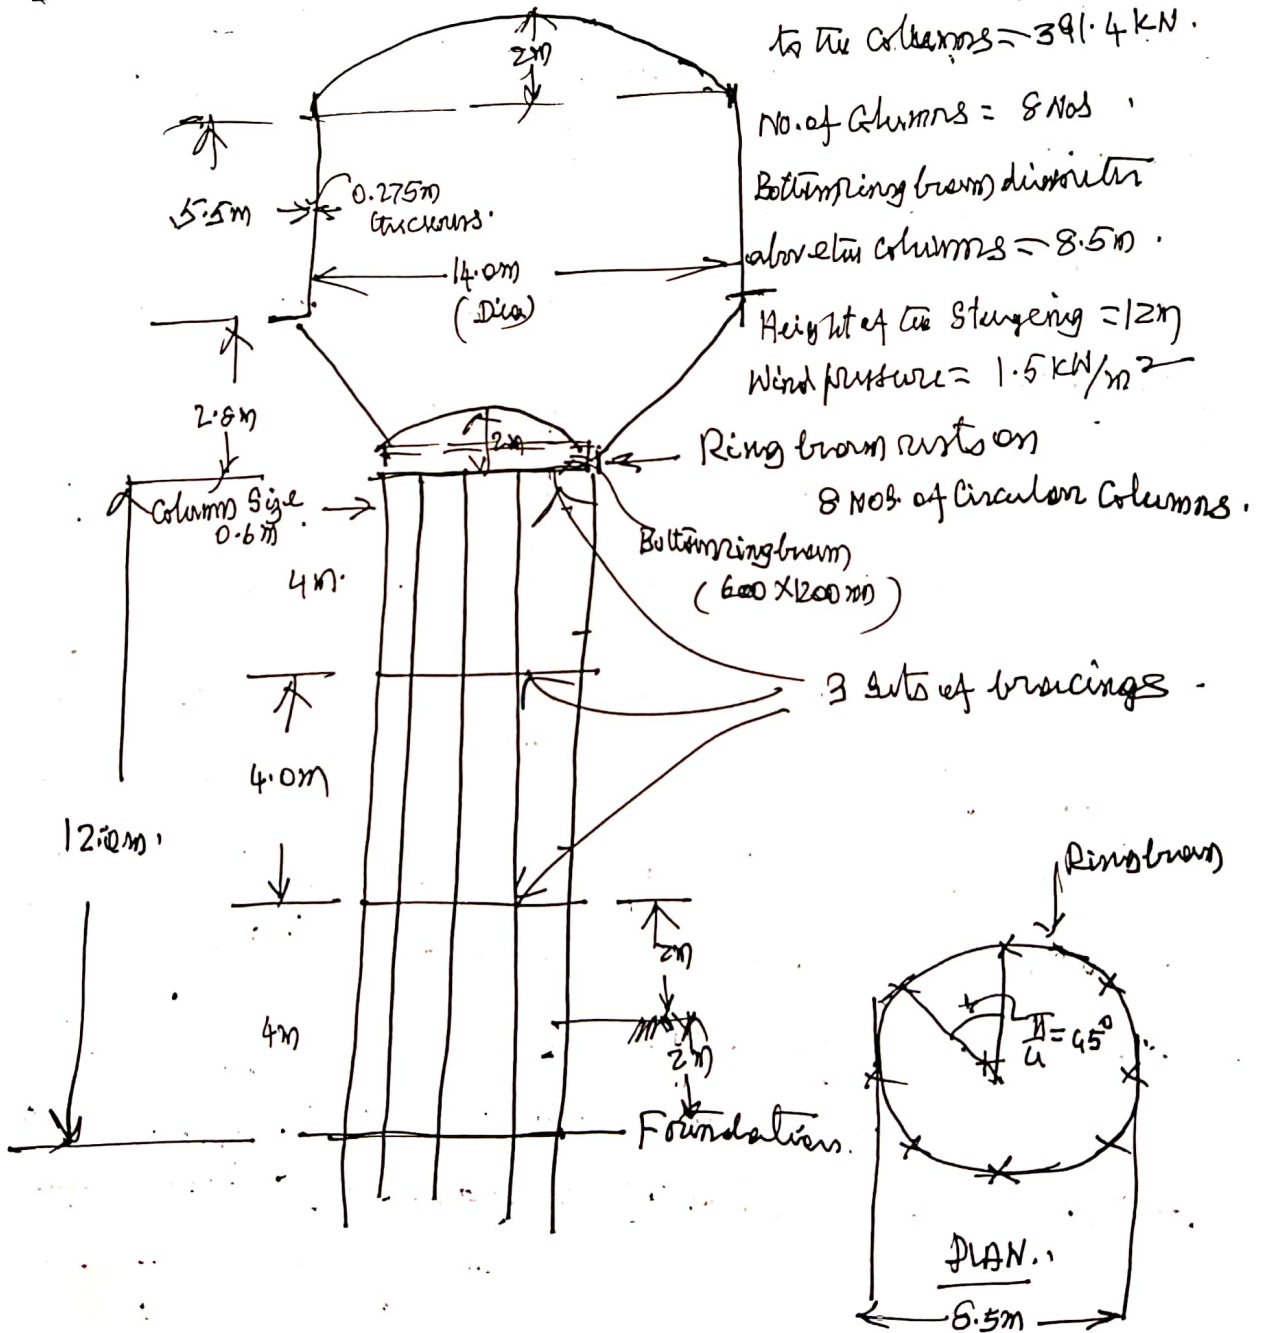 to the Columns = 391.4 KN.
No. of Columns = 8 Nos
Bottom ring beam diameter
above the columns = 8.5m.
Height of the Staggering = 12m
Wind pressure = 1.5 KN/m²
Ring beam rests on
8 Nos. of Circular Columns.
2m
5.5m
0.275m
thickness.
14.0m
(Dia)
2.8m
2m
Column Size
0.6m
Bottom ring beam
(600 X 1200 mm)
4m.
3 sets of bracings.
4.0m
12.0m.
2m
4m
2m
Foundation.
Ring beam
π/4 = 45°
PLAN.
8.5m